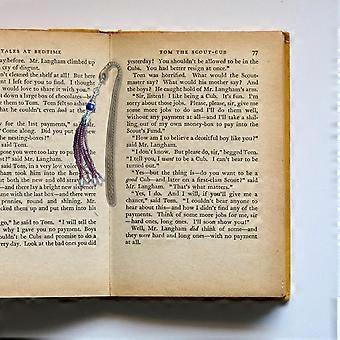 TALES AT BEDTIME
day before. Mr. Langham climbed
out of bed to look
n't cleaned the shelf at all! But I
would love to share with you."
Tom felt so ashamed
that he couldn't even look at the
boat on a box of chocolates—
around to Tom.
for the last payments,"
"Come along! Did you put
r?"
pose you were too lazy to polish
Langham to me."
ham took him into the
it both the new and old shelves.
r there was a bright sixpence
with the last bill—and there were
pennies, round and shining. Mr.
cked them up and put them into his
go," he said to Tom. "I will tell the
why I gave you no payment. Boys
n't be Cubs and promise to do a
every day. Look at the bad ones you did
TOM THE SCOUT-CUB 77
yesterday! You shouldn't be allowed to be in
the Cubs. You had better resign at once."
Tom was horrified. What would the Scout-
master say? What would his mother say? And
the boys? He caught hold of Mr. Langham's arm.
"Sir, listen! I like being a Cub. It's fun. I'm
sorry about those jobs. Please, please, sir, give
me some more jobs to do, and I will do them
without any payment at all—and I'll take a shil-
ling out of my own money-box to pay into the
Scout's Fund."
"How am I to believe a deceitful boy like you?"
said Mr. Langham.
"I don't know. But please do, sir," begged Tom.
"I tell you, I want to be a Cub. I can't bear to
stop."
"Yes—but the thing is—do you want to be a
good Cub—and later on a first-class Scout?" said
Mr. Langham. "That's what matters."
"Yes, I do. And I will, if you'll give me a
chance," said Tom. "I couldn't bear anyone to
hear about this—and how I didn't find any of the
payments. Think of some more jobs for me, sir
—hard ones, long ones. I'll soon show you!"
Well, Mr. Langham did think of some—and
they were hard and long ones—with no payment
at all.